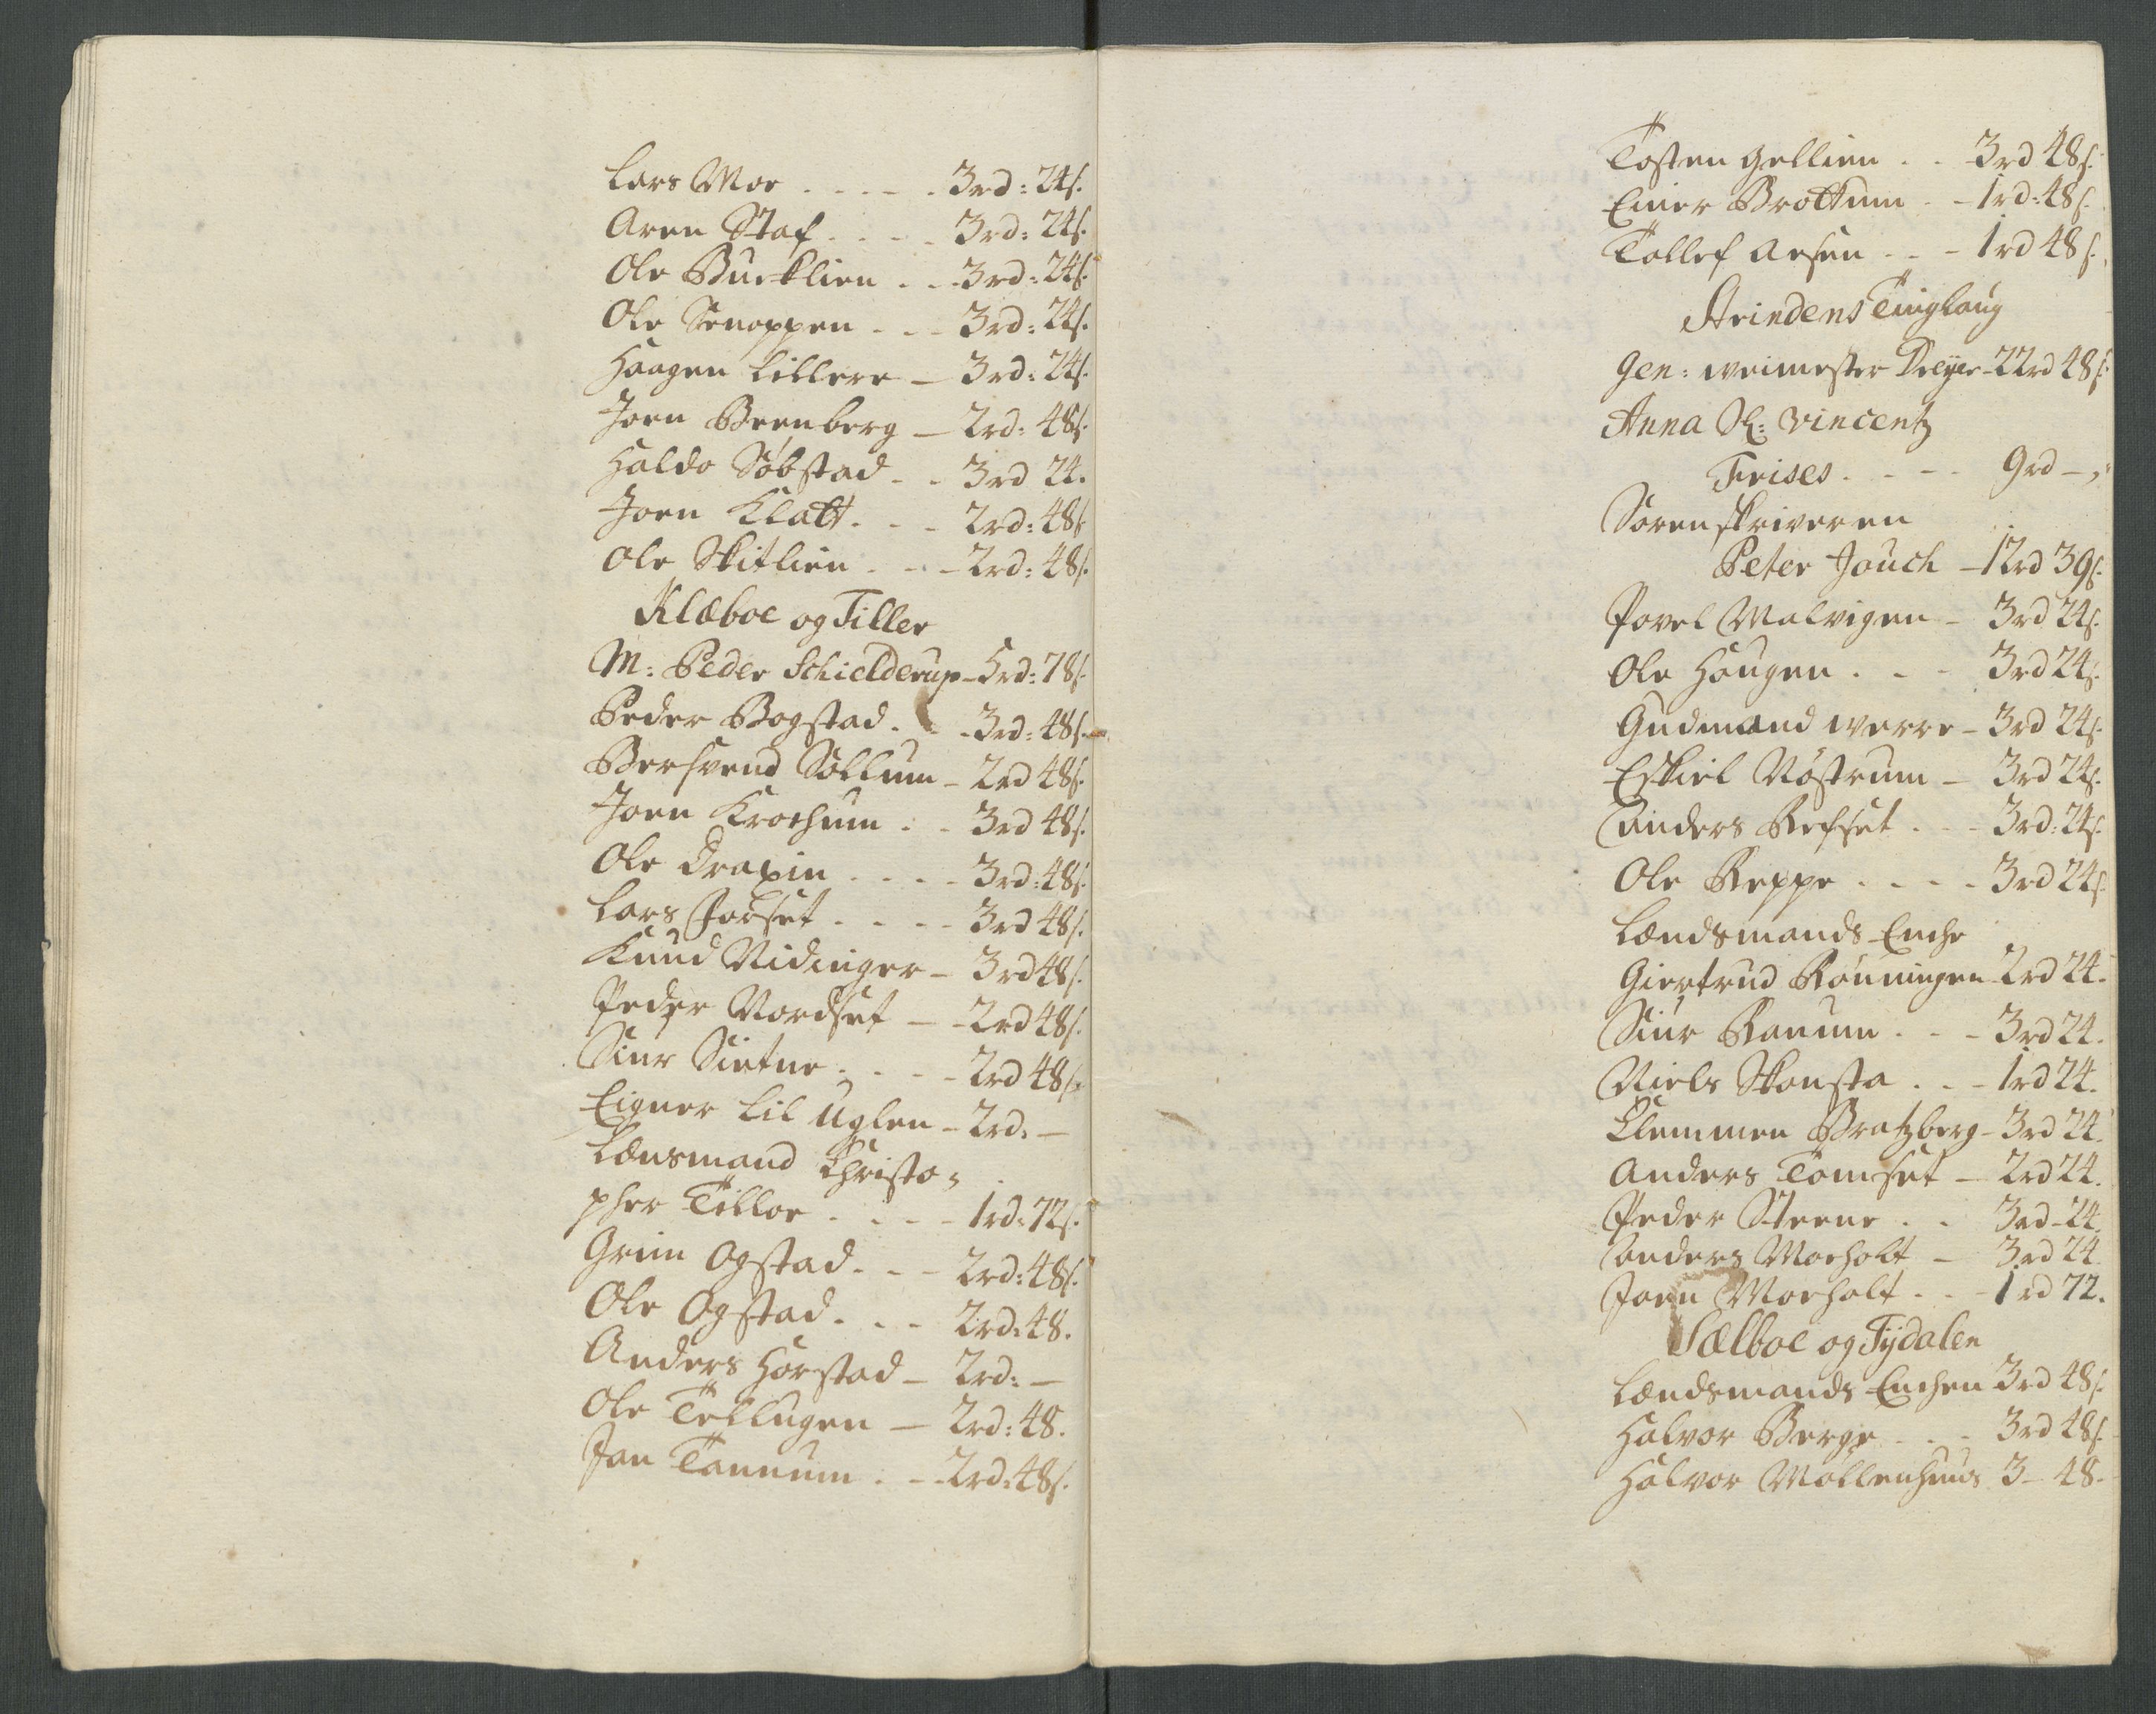 Lars Moe - - - - - 3rd: 24s.
Aren Staf - - - - 3rd: 24s.
Ole Burklien - - 3rd: 24s.
Ole Snoppen - - - 3rd: 24s.
Haagen Lillere - 3rd: 24s.
Joen Brenberg - 2rd: 48s.
Haldo Söbstad - - 3rd 24.
Joen Klatt - - - 2rd: 48s
Ole Skitlien - - - 2rd: 48s.
Klæboe og Tiller
M: Peder Schielderup - 5rd: 78s.
Peder Bogstad - - 3rd: 48s.
Bersvend Söllum - 2rd 48s.
Joen Krochum - - 3rd 48s.
Ole Draxin - - - - 3rd: 48s.
Lars Forset - - - - 3rd 48s.
Knud Nidinger - 3rd 48s.
Peder Nordset - - 2rd 48s.
Siur Sietne - - - - 2rd 48s.
Eigner Lil Uglen - 2rd. -
Lænsmand Christo=
pher Tilloe - - - - 1rd: 72s.
Grim Ogstad - - - 2rd: 48s.
Ole Ogstad - - - 2rd: 48.
Anders Horstad - 2rd: -
Ole Tellugen - 2rd: 48.
Jan Tannum - - 2rd: 48s.
Tosten Gellien - - 3rd 48s.
Einer Brottum - - 1rd: 48s.
Tollef Aesen - - - 1rd 48s.
Strindens Tinglaug
Gen: Weimester Dreyer - 22rd 48s.
Anna Sl: Vincentz
Frises - - - - 9rd -,
Sorenskriveren
Peter Jouch - 12rd 39s.
Povel Malvigen - 3rd 24s.
Ole Haugen - - - 3rd 24s.
Gudmand Werre - 3rd 24s.
Eskiel Nöstrum - 3rd 24s.
Anders Refset - - - 3rd: 24s.
Ole Reppe - - - - 3rd 24s.
Lændsmands Enche
Giertrud Rönningen 2rd 24.
Siur Ranum - - - 3rd 24.
Niels Skonsta - - - 1rd 24.
Clemmen Bratzberg - 3rd 24.
Anders Tomset - 2rd 24.
Peder Steene - - 3rd - 24.
Anders Moeholt - 3rd 24
Joen Moeholt - - - 1rd 72.
Sælboe og Tydalen
Lændsmands Enchen 3rd 48s.
Halvor Berge - - - 3rd 48s.
Halvor Mollenhuus 3 - 48 -